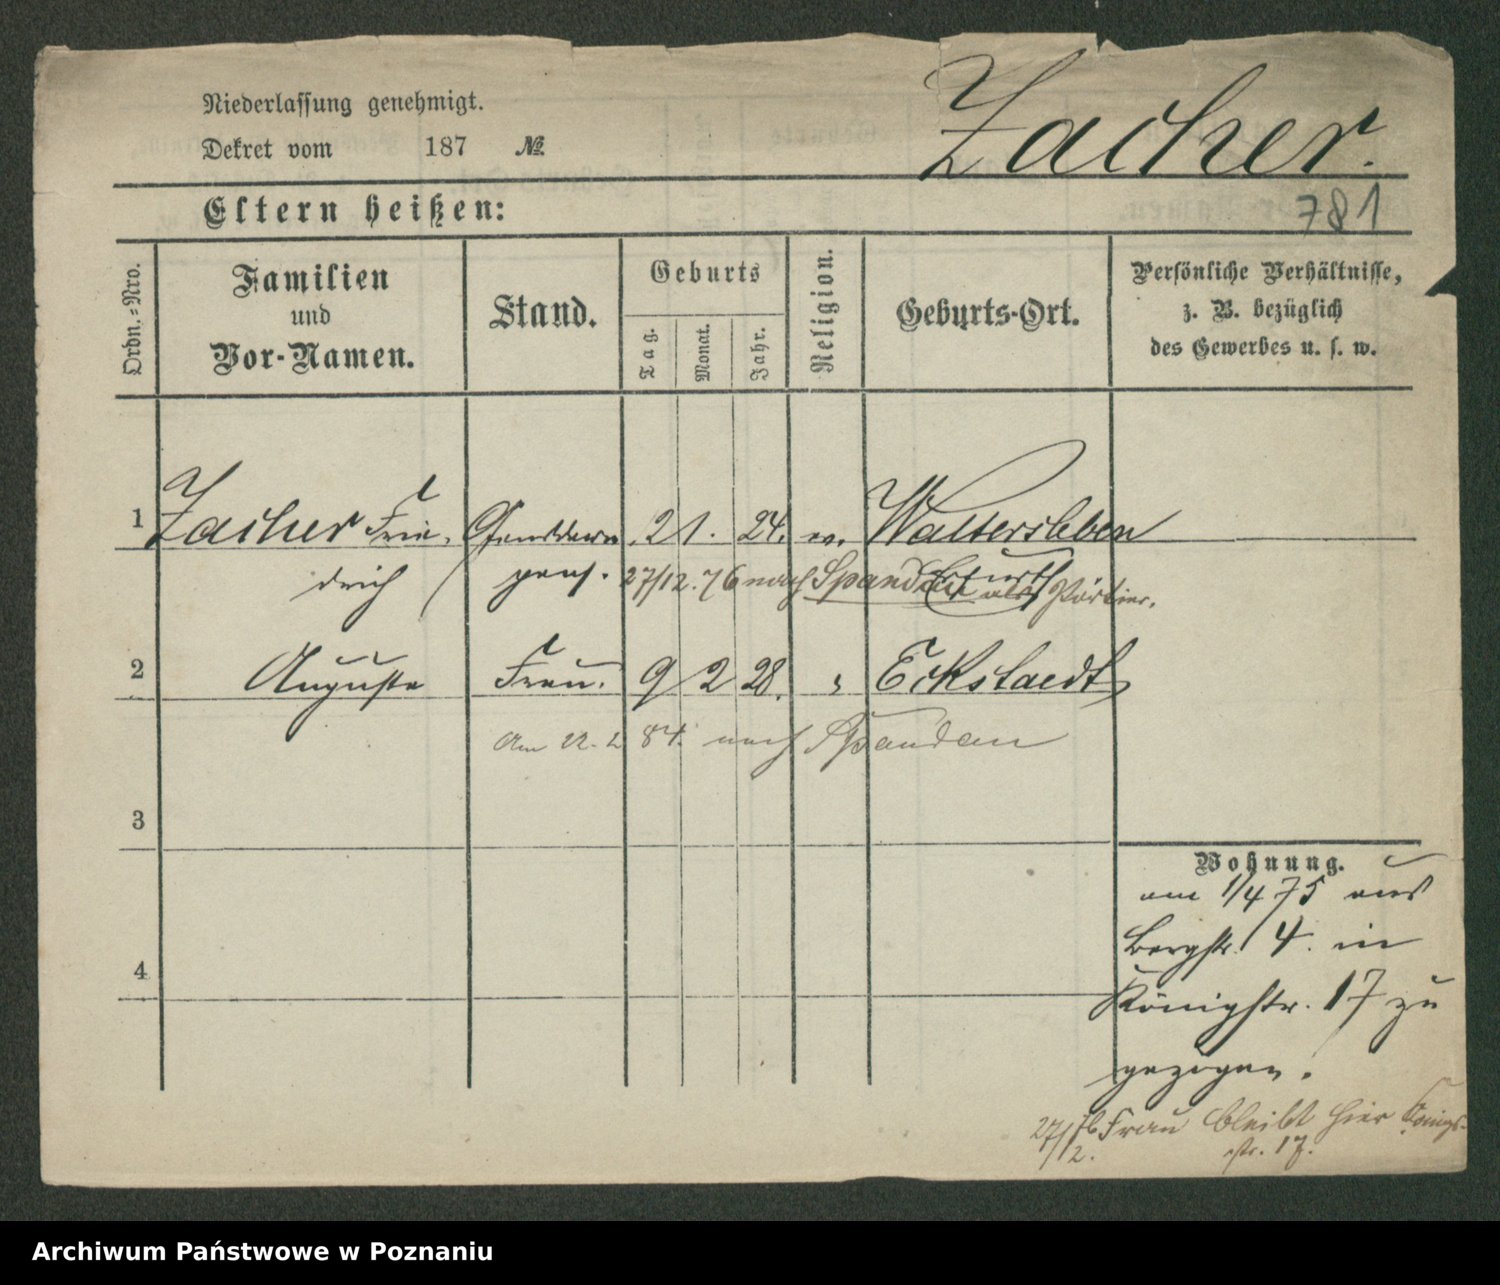 Niederlassung genehmigt.
Dekret vom 187 №
Zacher.
781
Eltern heißen:
Ordn.-Nro.
Familien
und
Vor-Namen.
Stand.
Geburts
Tag.
Monat.
Jahr.
Religion.
Geburts-Ort.
Persönliche Verhältnisse,
z. B. bezüglich
des Gewerbes u. s. w.
1 Zacher Frie- Gendarm 21. 24. ev. Waltersleben
drich pens. 27/12. 76 nach Spandau als Portier.
Erfurt
2 Auguste Frau. 9 2 28. " Eckstaedt
Am 22. 2 84. nach Spandau
3
4
Wohnung.
am 1/4 75 aus
Bergstr. 4. in
Königstr. 17 zu
gezogen.
27/12. 76 Frau bleibt hier Königs-
str. 17.
Archiwum Państwowe w Poznaniu